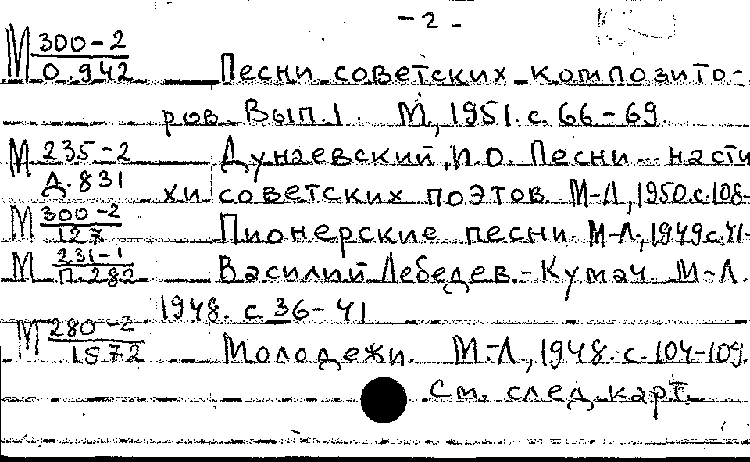 - 2 -
М 300-2
О.942 Песни советских композито-
ров. Вып.1. М., 1951. с. 66-69.
М 235-2 Дунаевский, И.О. Песни на сти
Д.831
хи советских поэтов. М-Л, 1950. с.108-
М 300-2
127 Пионерские песни. М-Л, 1949 с.41-
М 231-1
П.282 Василий Лебедев-Кумач. М-Л.
1948. с. 36-41
М 280-2
1572 Молодежи. М-Л, 1948. с. 104-109.
См. след. карт.